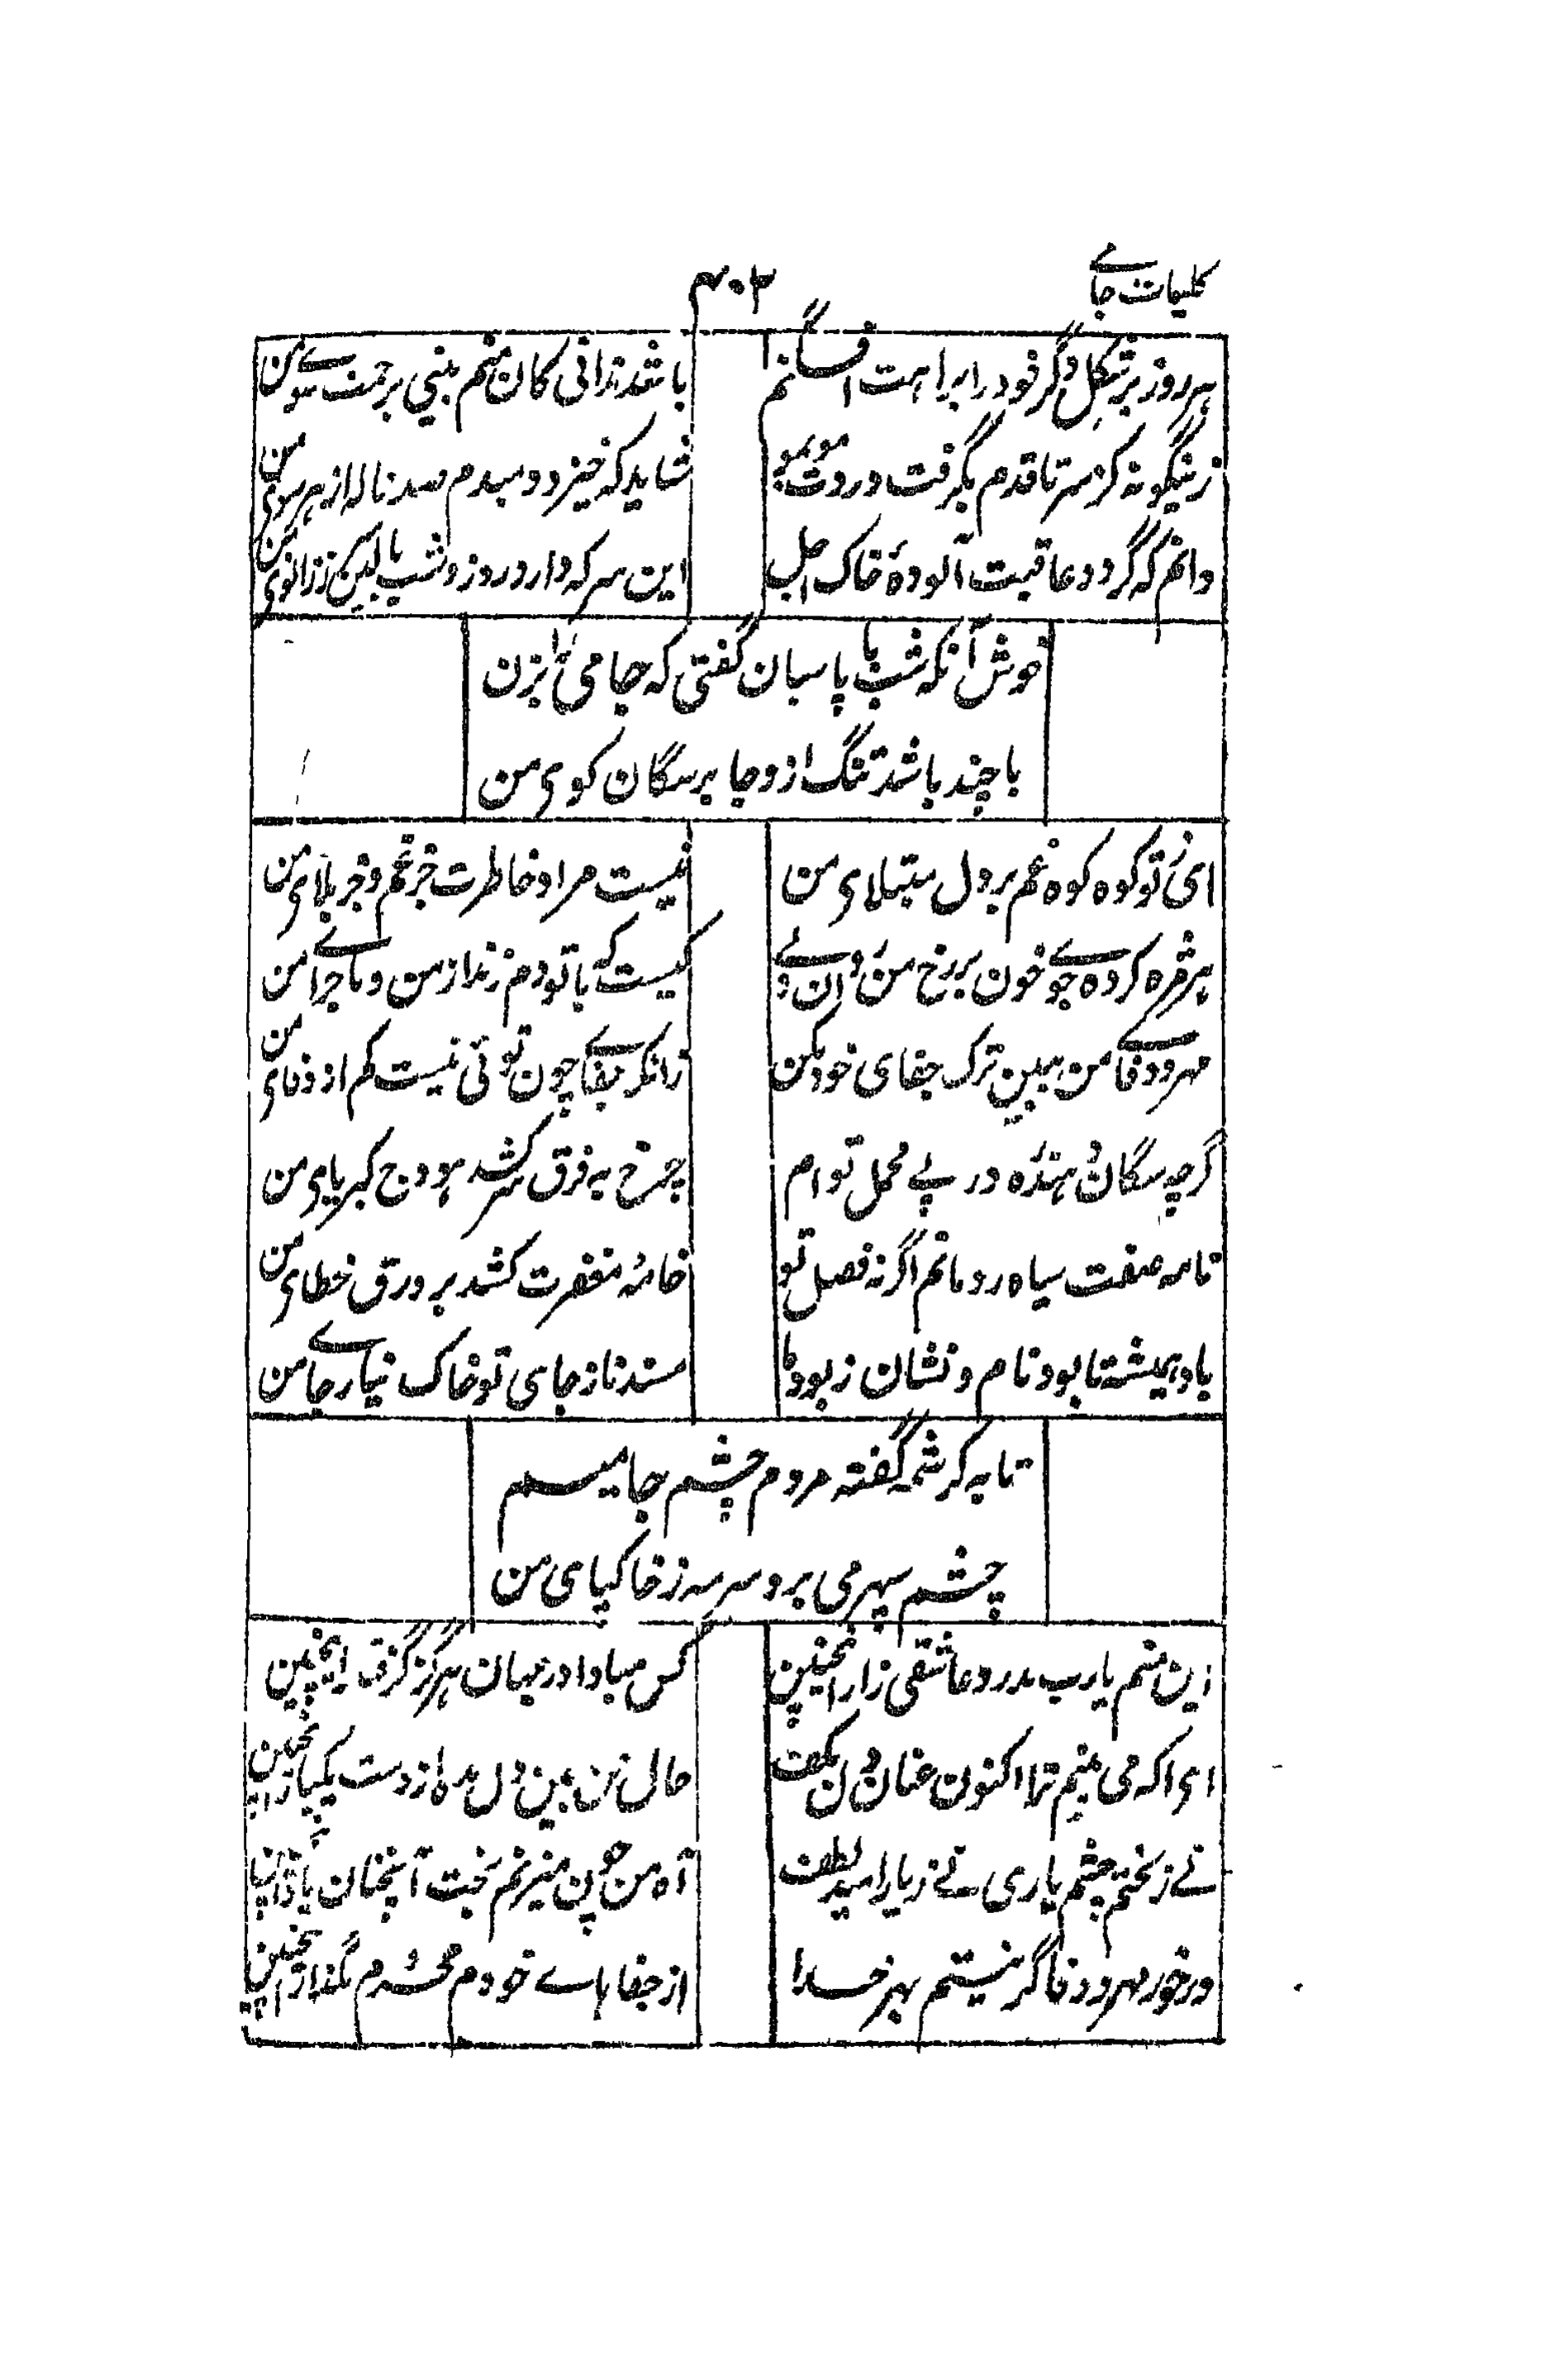 کلیات جامے
۴۰۳
هر روز بر شکل دگر خود را براهت افگنم
باشد ندانی کان منم بینی برحمت سوے من
زینگونه کز سر تا قدم بگرفت دردت موبمو
شاید که خیزد دمبدم صد ناله از هر موی من
دانم که گردد عاقبت آلودۀ خاک
این سر که دارد روز و شب بالین ز زانوی من
خوش آنکه شب با پاسبان گفتی که جامی را بزن
تا چند باشد تنگ ازو جا بر سگان کوی من
ای ز تو کوه کوه غم بر دل مبتلای من
نیست مراد خاطرت جز غم و جز بلای من
هر مژه کرده جوے خون بر رخ من
کیست که با تو دم زند از من و ماجراے من
مهر و وفاے من ببین ترک جفای خود مکن
زانکه جفاے چون توئی نیست کم از وفای من
گرچه سگان دونده در پے محمل تو ام
چرخ به فرق سر کشد هودج کبریای من
نامه صفت سیاه رو مانم اگر نه فضل تو
خامۀ مغفرت کشد بر ورق خطای من
باد همیشه تا بود نام و نشان ز بود ما
مسند ناز جای تو خاک نیاز جاے من
تا به کرشمه گفتۀ مردم چشم جامیم
چشم سپهر می برد سرمه ز خاکپای من
این منم یارب بدرد عاشقی زار اینچنین
کس مبادا در جهان هرگز گرفتار اینچنین
ای که می بینم ترا اکنون عنان دل بکف
حال من بین دل مده از دست یکبار اینچنین
نے ز بختم چشم یاری نے ز یار امید لطف
آه من چون میزیم بخت آنچنان یار اینچنین
درخور مهر و وفا گر نیستم بهر خدا
از جفاهاے خودم محروم مگذار اینچنین